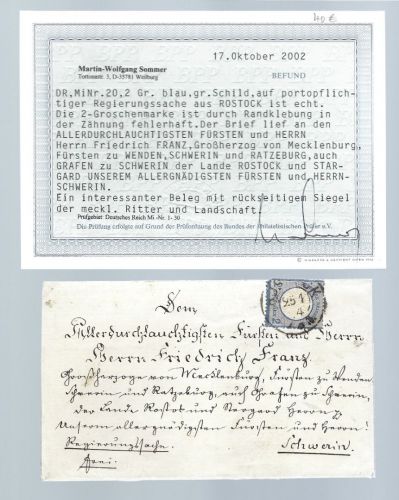 40 €
Martin-Wolfgang Sommer
Tortonastr. 3, D-35781 Weilburg
17.Oktober 2002
BEFUND
DR,MiNr.20,2 Gr. blau,gr.Schild,auf portopflich-
tiger Regierungssache aus ROSTOCK ist echt.
Die 2-Groschenmarke ist durch Randklebung in
der Zähnung fehlerhaft.Der Brief lief an den
ALLERDURCHLAUCHTIGSTEN FÜRSTEN und HERRN
Herrn Friedrich FRANZ,Großherzog von Mecklenburg,
Fürsten zu WENDEN,SCHWERIN und RATZEBURG,auch
GRAFEN zu SCHWERIN der Lande ROSTOCK und STAR-
GARD UNSEREM ALLERGNÄDIGSTEN FÜRSTEN und HERRN-
SCHWERIN.
Ein interessanter Beleg mit rückseitigem Siegel
der meckl. Ritter und Landschaft.
Prüfgebiet: Deutsches Reich Mi -Nr. 1- 30
Die Prüfung erfolgte auf Grund der Prüfordnung des Bundes der Philatelistischen Prüfer e.V.
Dem
Allerdurchlauchtigsten Fürsten und Herrn
Herrn Friedrich Franz
Großherzoge von Mecklenburg, Fürsten zu Wenden
Schwerin und Ratzeburg, auch Grafen zu Schwerin,
der Lande Rostock und Stargard Herrn
Unserm allergnädigsten Fürsten und Herrn
Regierungssache
Schwerin.
frei.